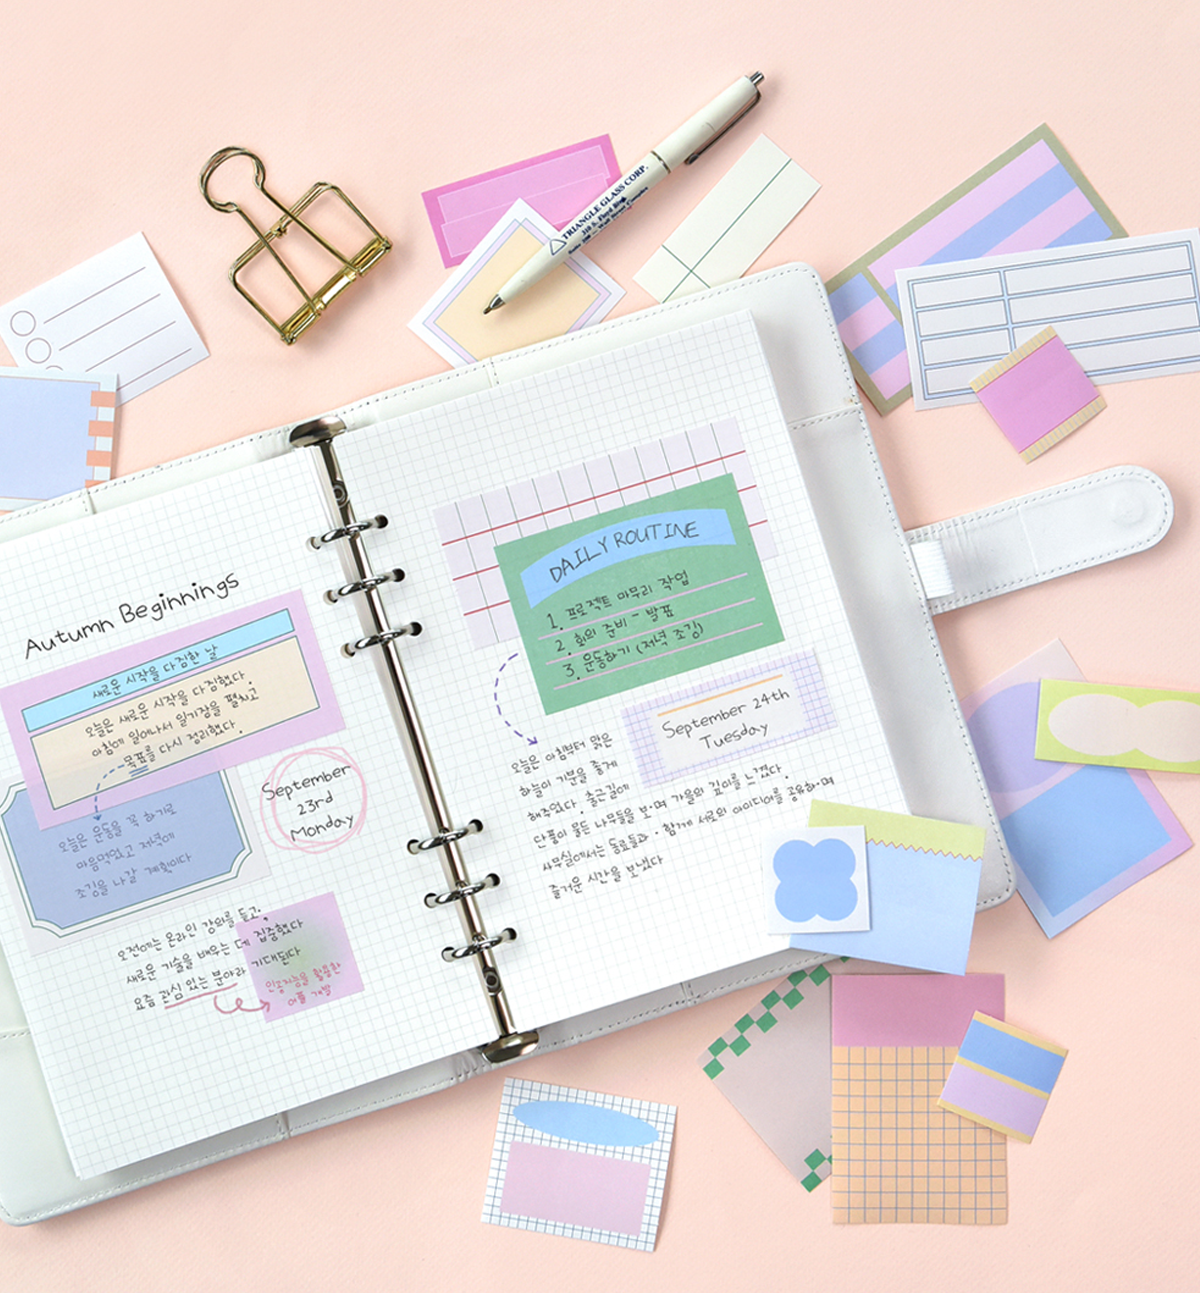 TRIANGLE GLASS CORP.
Autumn Beginnings
새로운 시작을 다짐한 날
오늘은 새로운 시작을 다짐했다.
아침에 일어나서 일기장을 펼치고
목표를 다시 정리했다.
오늘은 운동을 꼭 하기로
마음먹었고 저녁에
조깅을 나갈 계획이다
September
23rd
Monday
오전에는 온라인 강의를 듣고,
새로운 기술을 배우는 데 집중했다
요즘 관심 있는 분야라 기대된다
인공지능을 활용한
어플 개발
DAILY ROUTINE
1. 프로젝트 마무리 작업
2. 회의 준비 - 발표
3. 운동하기 (저녁 조깅)
September 24th
Tuesday
오늘은 아침부터 맑은
하늘이 기분을 좋게
해주었다. 출근길에
단풍이 물든 나무들을 보며 가을의 깊이를 느꼈다.
사무실에서는 동료들과 함께 서로의 아이디어를 공유하며
즐거운 시간을 보냈다